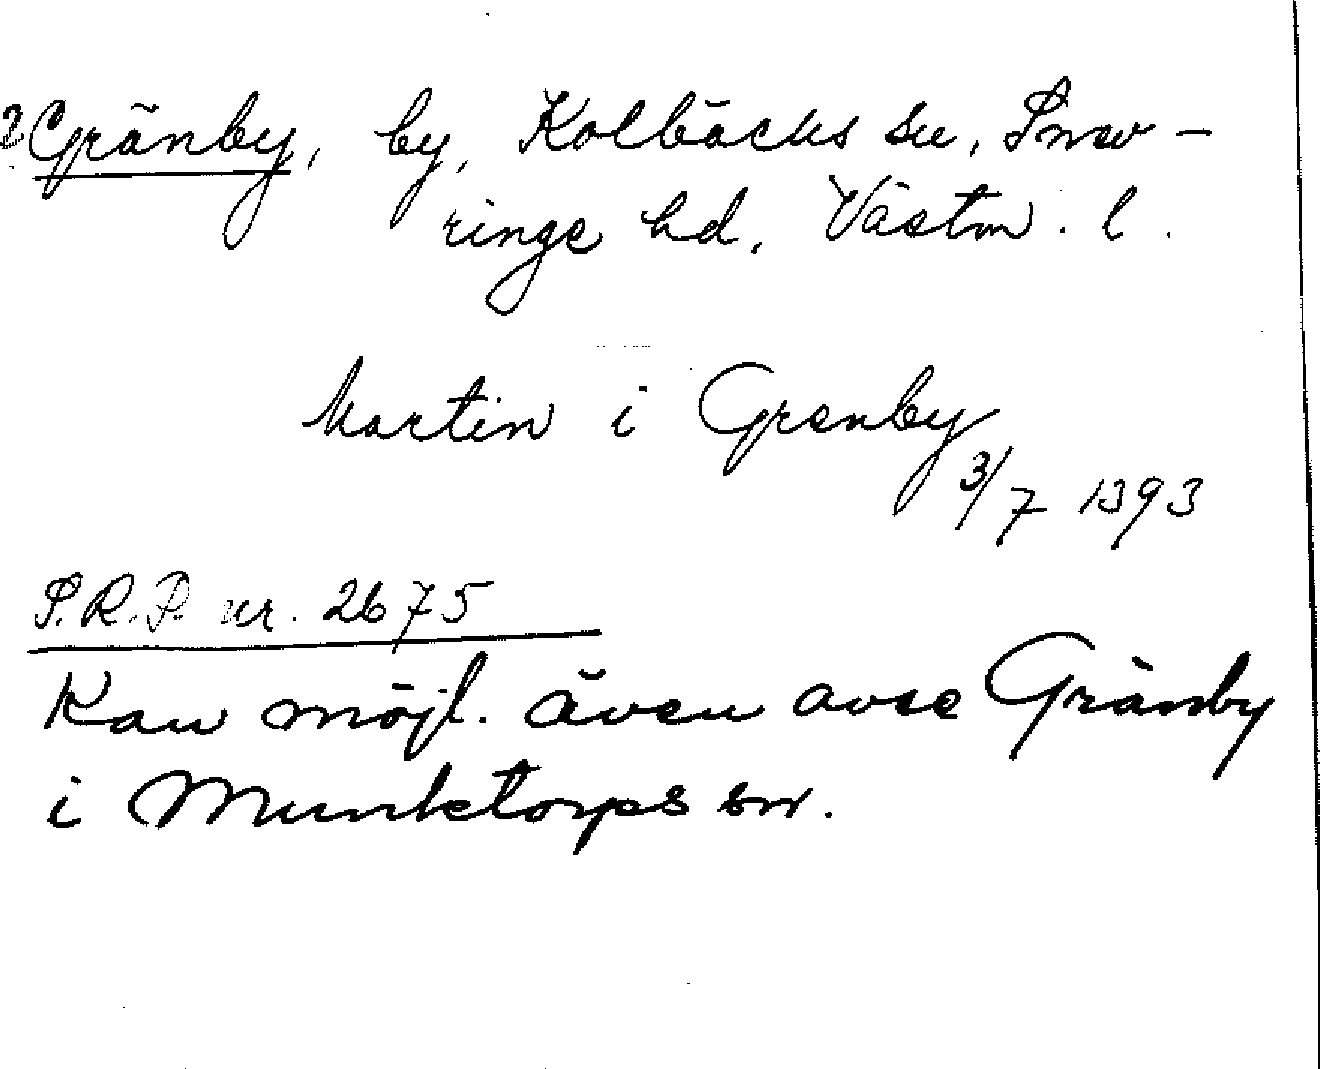 ? Gränby, by, Kolbäcks sn, Snev-
ringe hd, Västm. l.
Martin i Grenby
3/7 1393
S.R.P. nr. 2675
Kan möjl. även avse Gränby
i Munktorps sn.